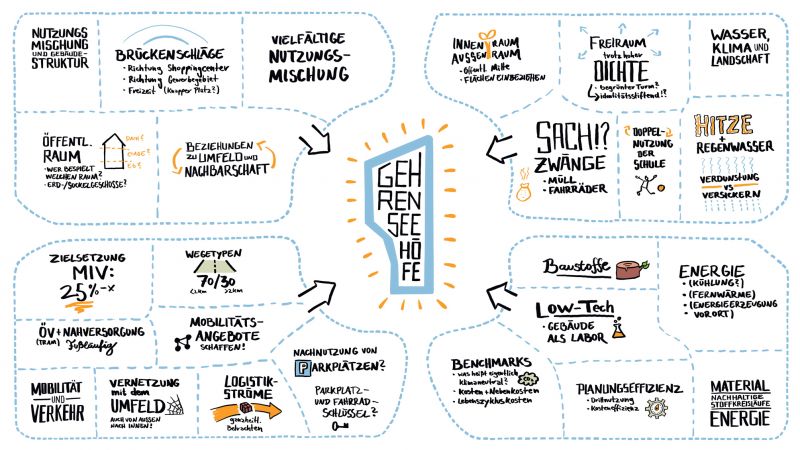 NUTZUNGS
MISCHUNG
UND GEBÄUDE-
STRUKTUR
BRÜCKENSCHLÄGE
• Richtung Shoppingcenter
• Richtung Gewerbegebiet
• Freizeit (Knapper Platz?)
VIELFÄLTIGE
NUTZUNGS-
MISCHUNG
ÖFFENTL.
RAUM
• WER BESPIELT
WELCHEN RAUM?
• ERD-/SOCKELGESCHOSSE?
DACH?
ETAGE?
EG?
BEZIEHUNGEN
ZU UMFELD UND
NACHBARSCHAFT
INNENRAUM
AUSSENRAUM
• Öffentl. Mitte
• FLÄCHEN EINBEZIEHEN
FREIRAUM
trotz hoher
DICHTE
• begrünter Turm?
identitätsstiftend!?
WASSER,
KLIMA UND
LANDSCHAFT
SACH!?
ZWÄNGE
• MÜLL
• FAHRRÄDER
DOPPEL-
NUTZUNG
DER
SCHULE
HITZE
+
REGENWASSER
VERDUNSTUNG
VS
VERSICKERN
GEH
REN
SEE
HÖ
FE
ZIELSETZUNG
MIV:
25%-X
WEGETYPEN
70/30
<2km >2km
ÖV + NAHVERSORGUNG
(TRAM) Fußläufig
MOBILITÄTS-
ANGEBOTE
SCHAFFEN!
MOBILITÄT
UND
VERKEHR
VERNETZUNG
mit dem
UMFELD
AUCH VON AUSSEN
NACH INNEN?
LOGISTIK-
STRÖME
ganzheitl.
Betrachten
NACHNUTZUNG VON
PARKPLÄTZEN?
PARKPLATZ-
UND FAHRRAD-
SCHLÜSSEL?
Baustoffe
LOW-TECH
• GEBÄUDE
ALS LABOR
ENERGIE
• (KÜHLUNG?)
• (FERNWÄRME)
• (ENERGIEERZEUGUNG
VOR ORT)
BENCHMARKS
• was heißt eigentlich
klimaneutral?
CO2
• Kosten + Nebenkosten
• Lebenszykluskosten
PLANUNGSEFFIZIENZ
• Drittnutzung
• Kosteneffizienz
MATERIAL
NACHHALTIGE
STOFFKREISLÄUFE
ENERGIE